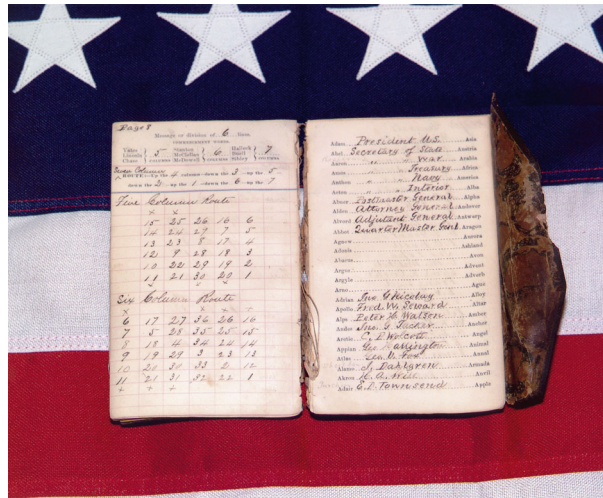 Page 8
Message or division of 6 lines.
COMMENCEMENT WORDS.
Yates
Lincoln 5
Chase COLUMNS
Stanton
McClellan 6
McDowell COLUMNS
Halleck
Buell 7
Sibley COLUMNS
Seven Column
ROUTE:—Up the 4 column—down the 3—up the 5—
down the 2—up the 1—down the 6—up the 7
Five Column Route
x x
15 25 26 16 6
14 24 29 7 5
13 23 8 17 4
12 9 28 18 3
10 22 29 19 2
11 21 30 20 1
Six Column Route
6 17 27 36 26 16
7 5 28 35 25 15
8 18 4 34 24 14
9 19 29 3 23 13
10 20 30 33 2 12
11 21 31 32 22 1
x x x
Adam President U.S. Asia
Abel Secretary of State Austria
Aaron " " War Arabia
" " Treasury Africa
" " Navy Austin
" " Interior Alba
Postmaster General Alpha
Alden Attorney General Andover
Adjutant General Antwerp
Quarter Master Genl Aragon
Agnew Aurora
Ashland
Avon
Argus Advent
Argyle
Arno Agus
Adrian Jno. G Nicolay Alloy
Apollo Fred. W. Seward Altar
Alps Peter H. Watson Amboy
Jno. Tucker Anchor
C. P Wolcott Angel
Appian Geo Harrington Animal
Atlas Annual
J. Dahlgren Armada
Akron Anvil
Adair E.D. Townsend Apple